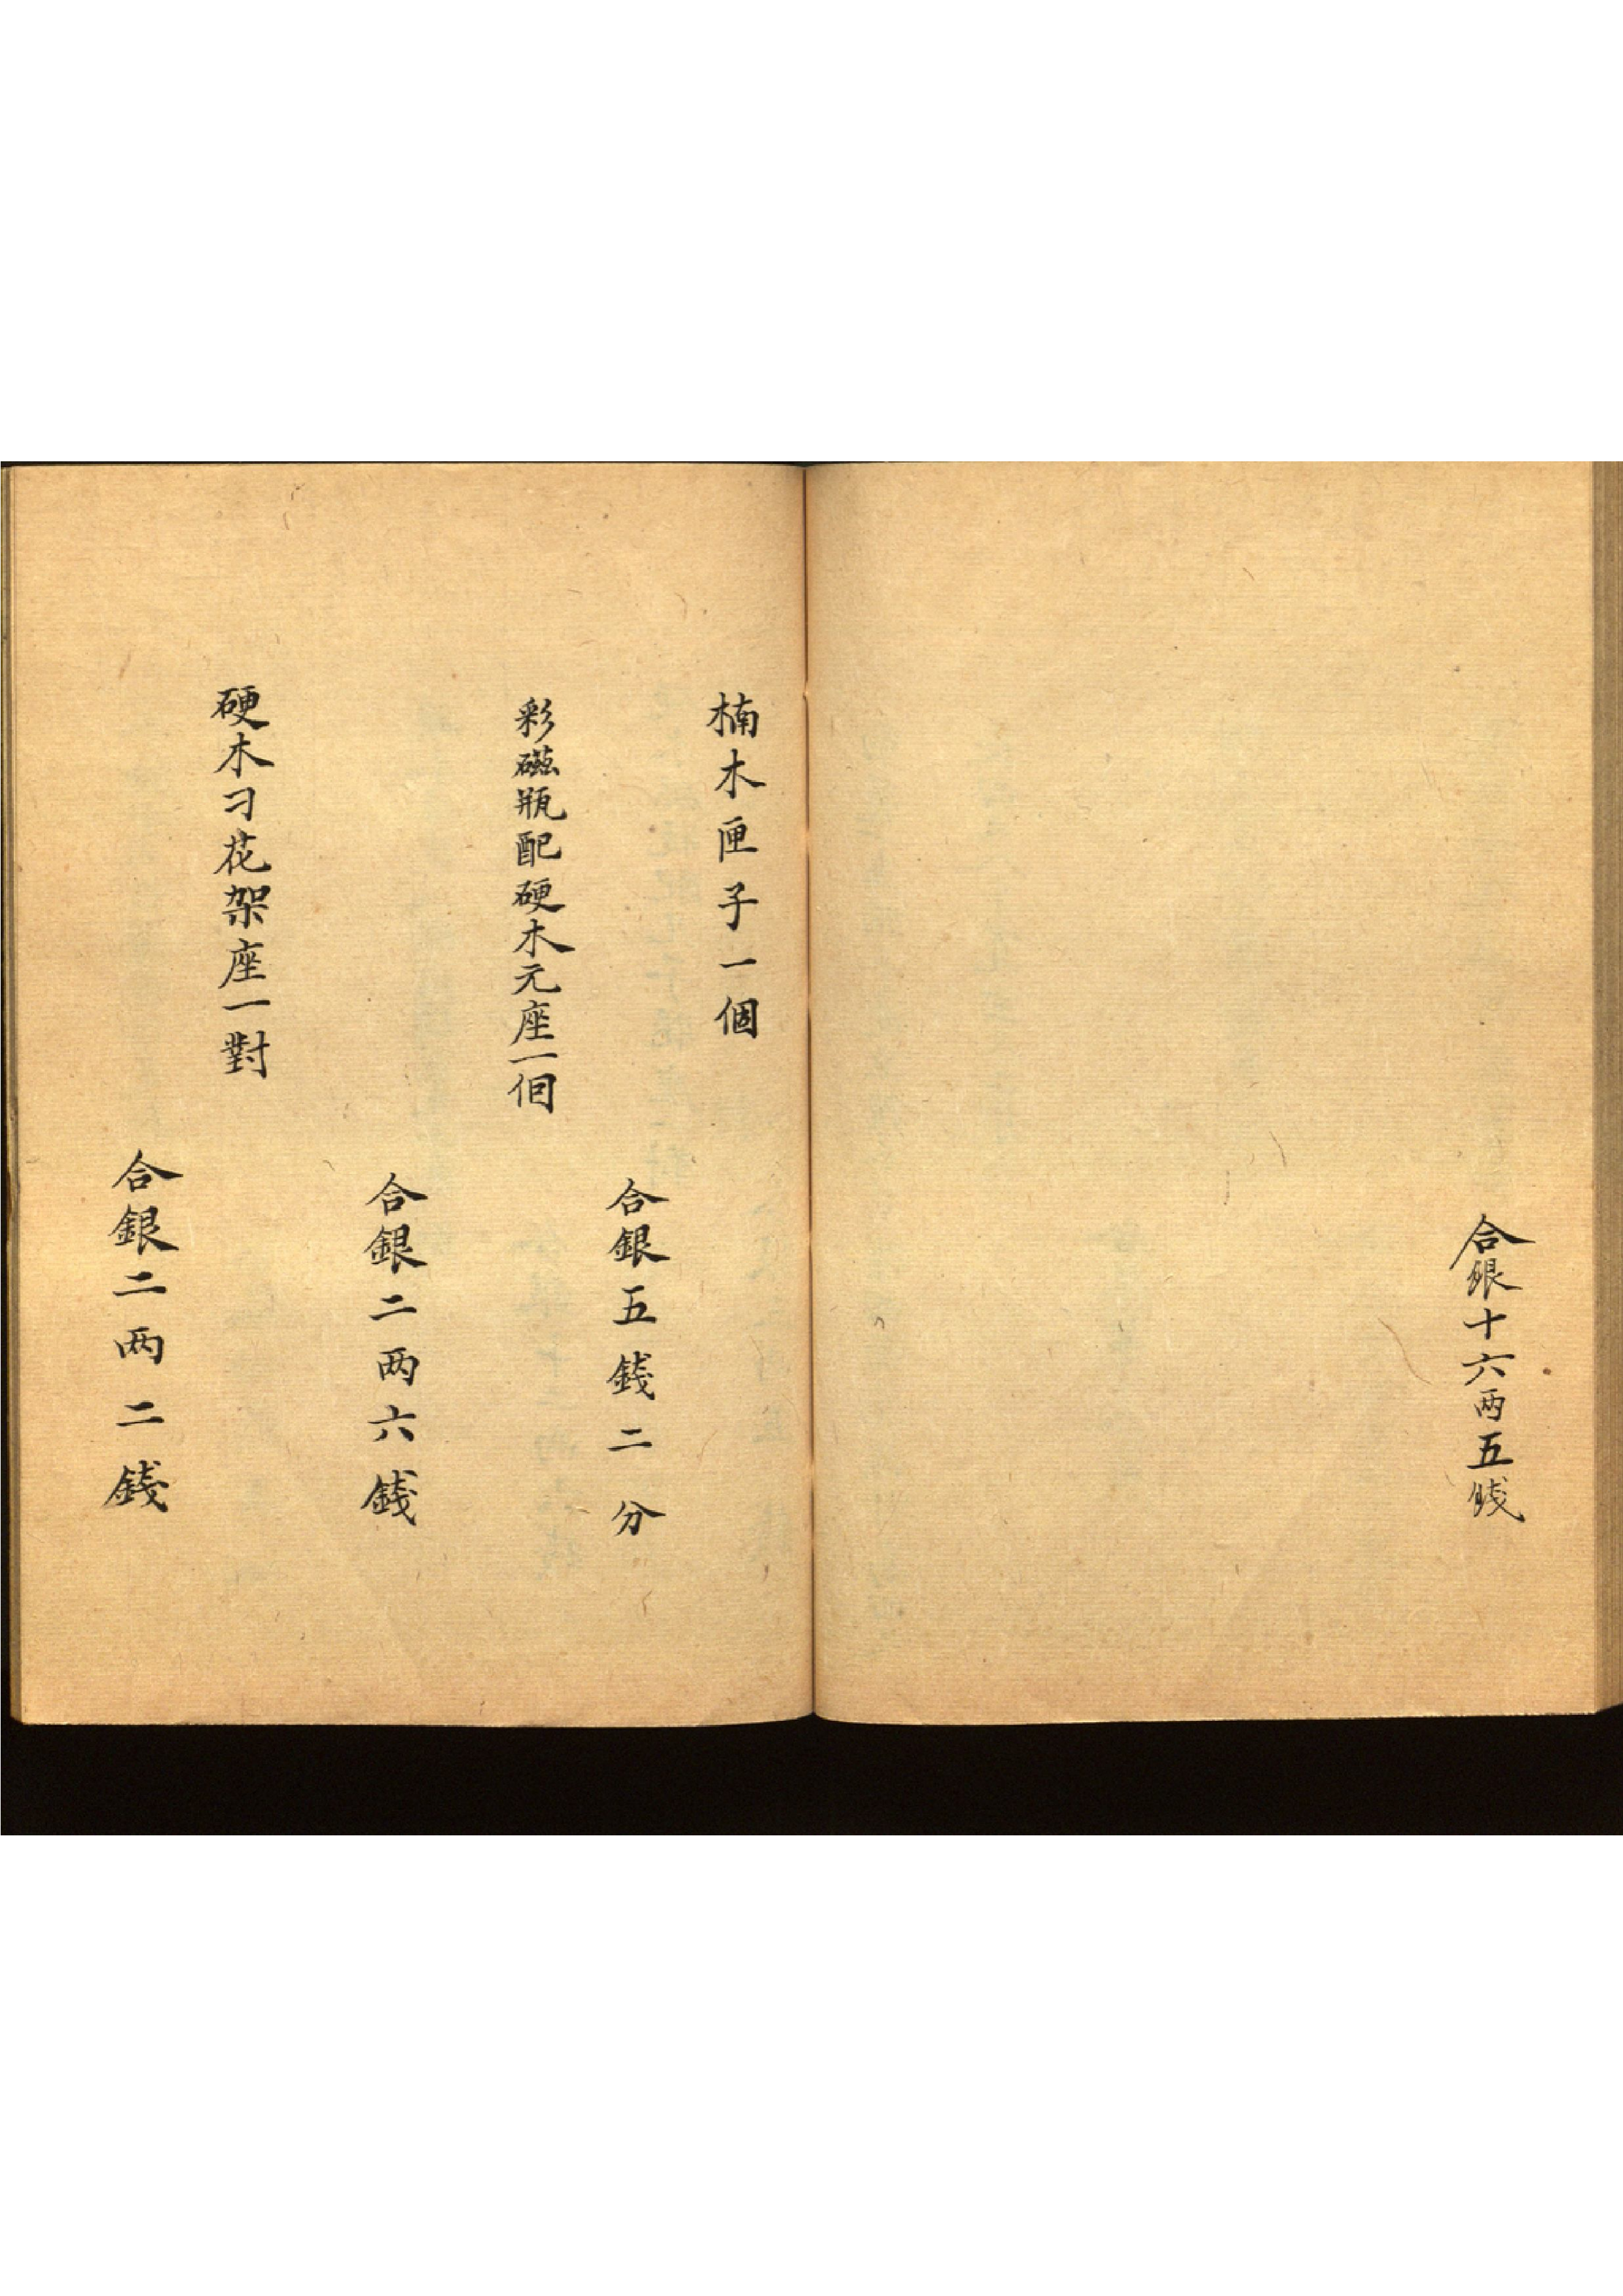 合銀十六两五錢
楠木匣子一個
合銀五錢二分
彩磁瓶配硬木元座一個
合銀二两六錢
硬木刁花架座一對
合銀二两二錢